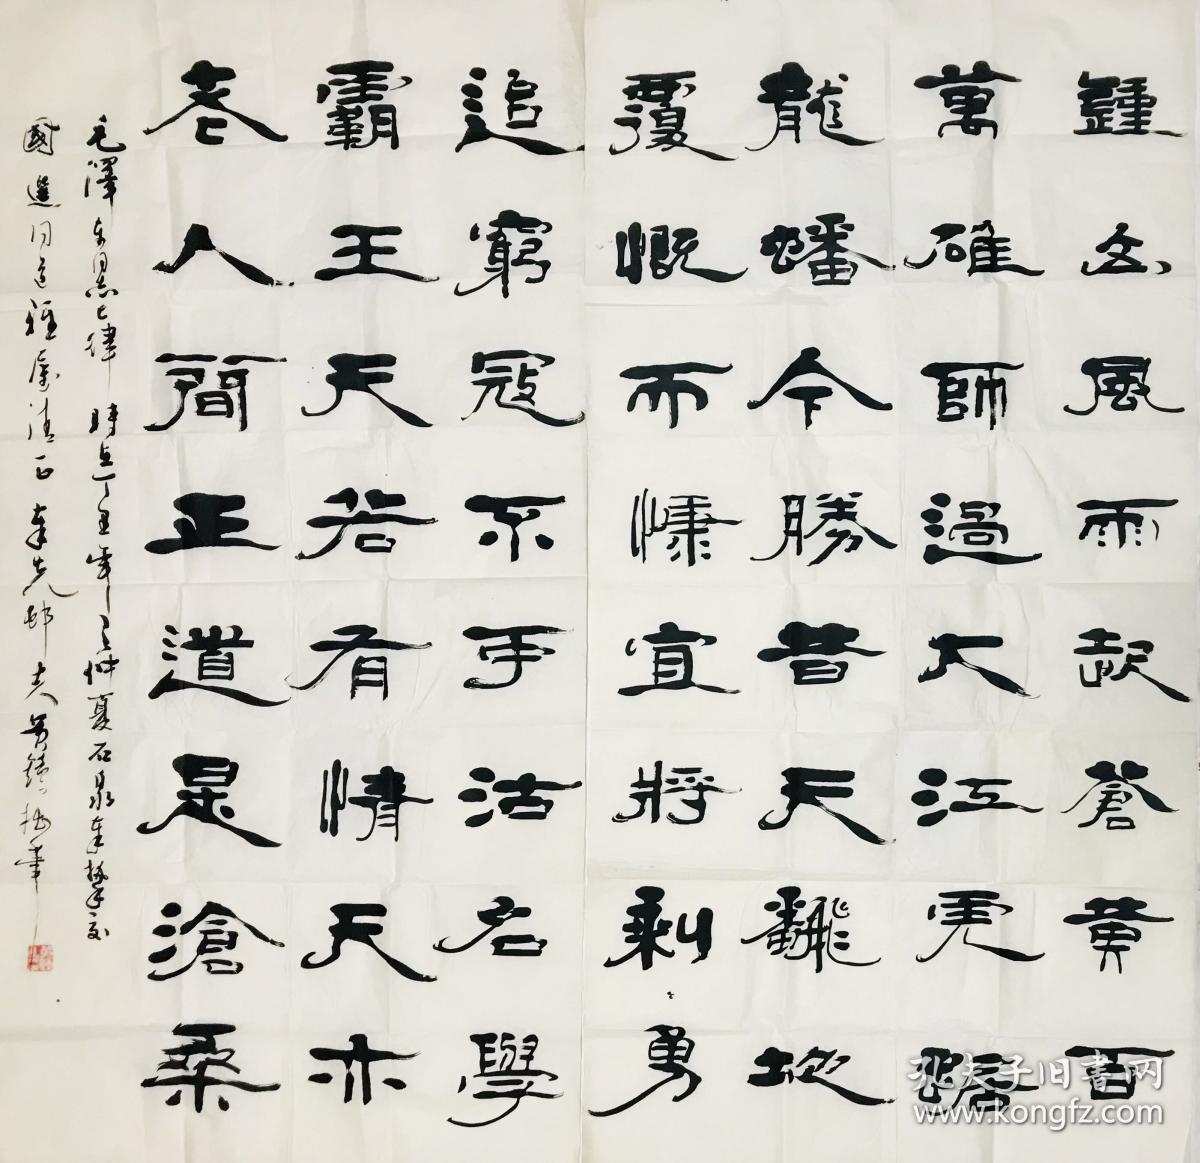 鍾山風雨起蒼黄百
萬雄師過大江虎踞
龍蟠今勝昔天翻地
覆慨而慷宜將剩勇
追窮寇不可沽名學
霸王天若有情天亦
老人間正道是滄桑
毛澤東同志七律 時在丁丑年之仲夏石泉
國選同道雅屬清正
孔夫子旧书网
www.kongfz.com